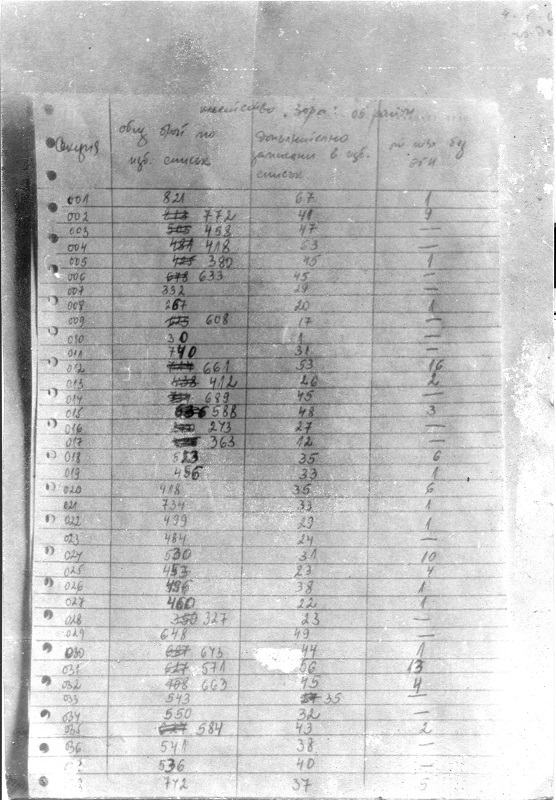 кметство "Зора": об район
Секция общ брой по изб. списък Допълнително записани в изб. списък от тях без ЭГН
001 821 67 1
002 772 41 9
003 505 458 47 —
004 481 418 63 —
005 425 380 45 1
006 678 633 45 —
007 332 29 —
008 267 20 1
009 625 608 17 —
010 30 1 —
011 740 31 —
012 661 53 16
013 438 412 26 2
014 689 45 —
015 636 588 48 3
016 243 27 —
017 363 12 —
018 523 35 6
019 456 33 1
020 418 35 6
021 734 33 1
022 499 29 1
023 484 24 —
024 530 31 10
025 453 23 4
026 496 38 1
027 460 22 1
028 350 327 23 —
029 648 49 —
030 687 643 44 1
031 627 571 56 13
032 708 663 45 4
033 543 35 —
034 550 32 —
035 627 584 43 2
036 541 38 —
536 40 —
742 37 5